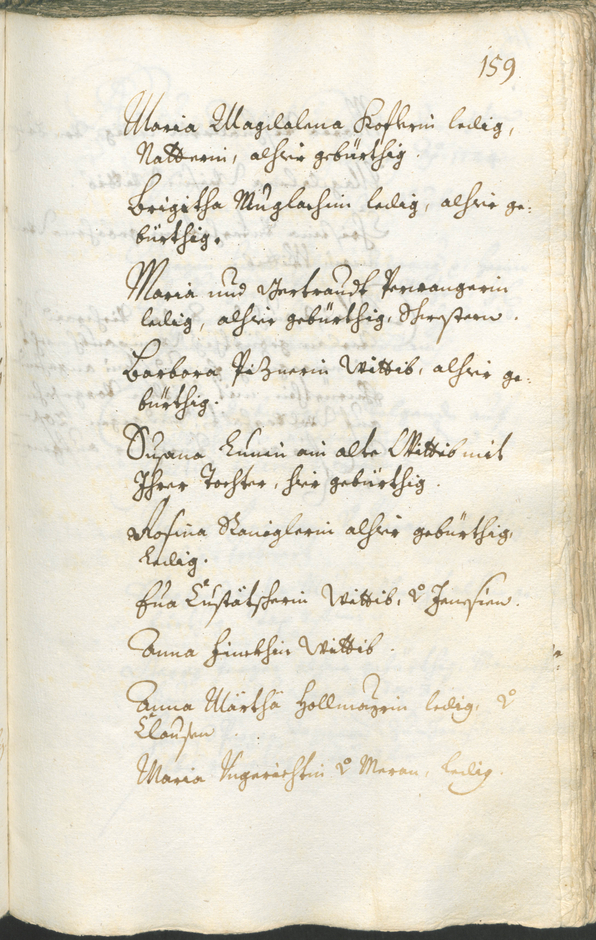 159
Maria Magdalena Koflerin ledig,
Natterin, alhier gebürthig.
Brigitha Muglachin ledig, alhier ge:
bürthig.
Maria und Gertraudt Perwangerin
ledig, alhier gebürthig, Schwestern.
Barbara Pitznerin Wittib, alhier ge:
bürthig.
Susana ain alte Wittib mit
Ihrer Tochter, hier gebürthig.
Rosina alhier gebürthig,
ledig.
Eva Wittib, Jenesien.
Anna Wittib.
Anna Martha Hollmayrin ledig,
Clausen
Maria Ungerichtin Meran, ledig.